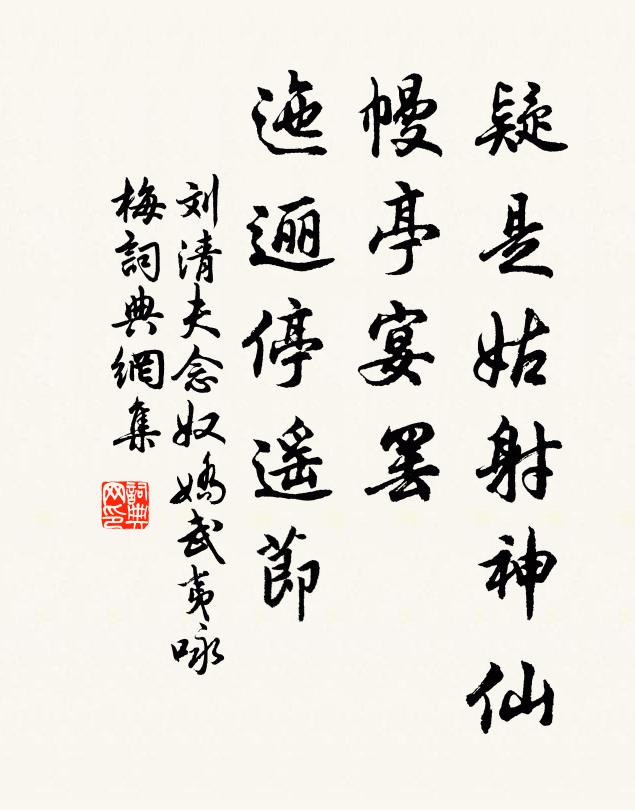 疑是姑射神仙
幔亭宴罢
迤逦停遥節
刘清夫念奴嬌武夷咏
梅詞典網集
詞典
网印